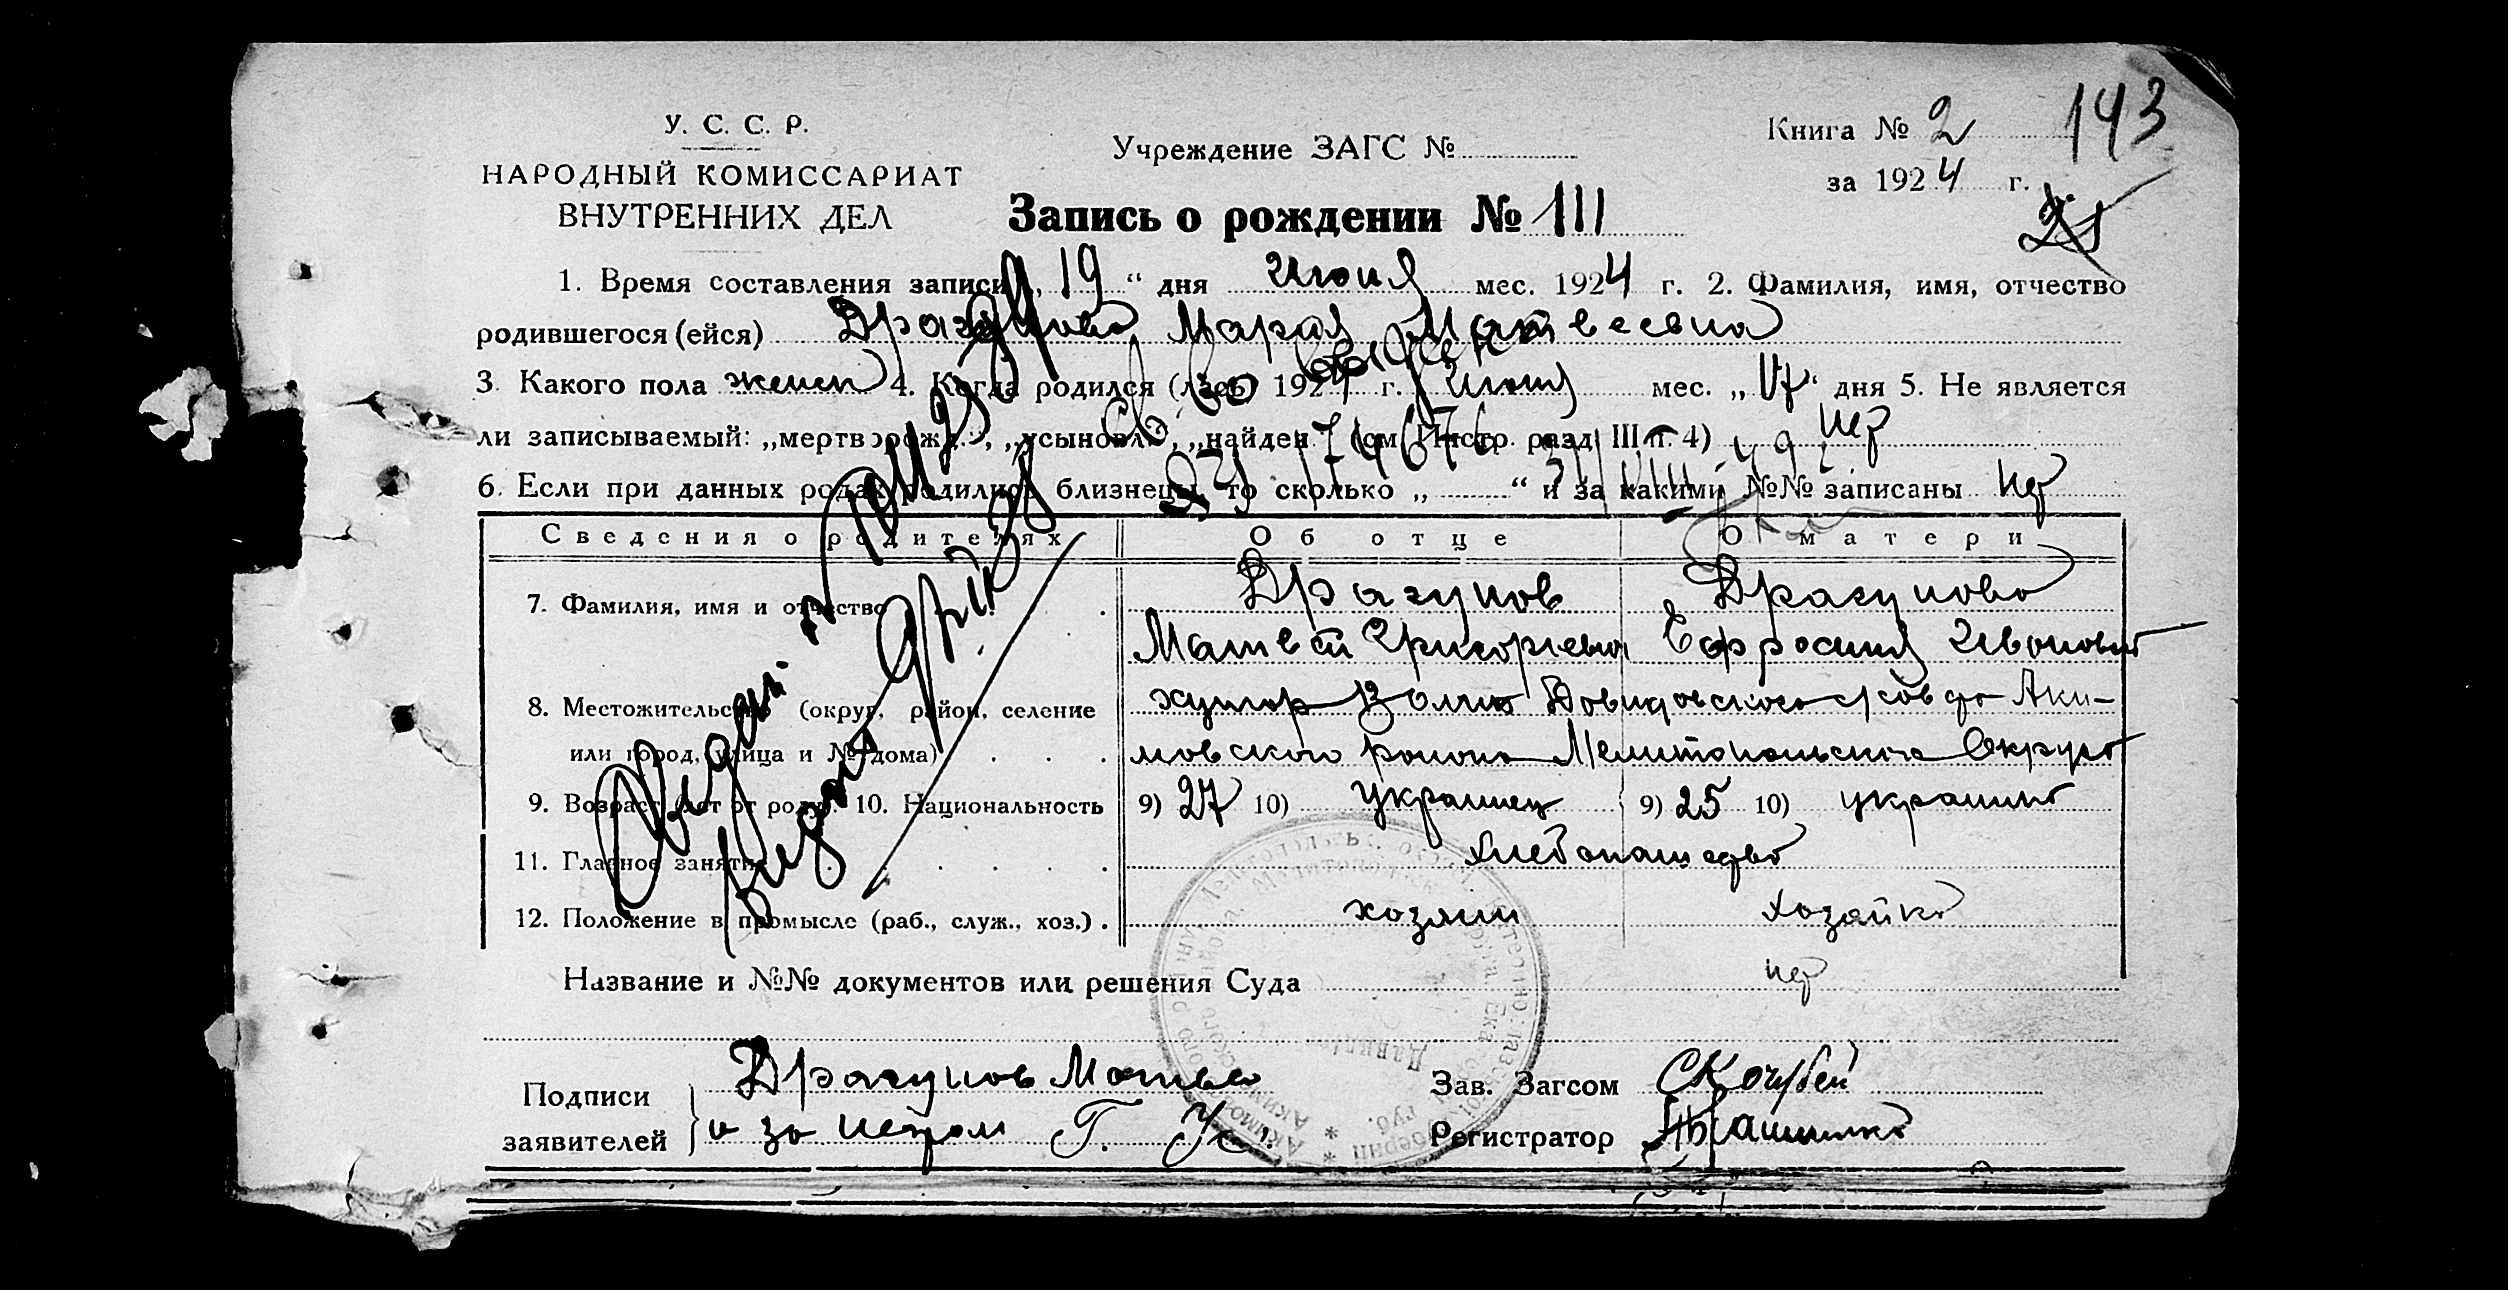 У. С. С. Р.
НАРОДНЫЙ КОМИССАРИАТ
ВНУТРЕННИХ ДЕЛ
Учреждение ЗАГС №
Книга № 2
143
за 1924 г.
Запись о рождении № 111
1. Время составления записи „ 19 “ дня Июня мес. 1924 г. 2. Фамилия, имя, отчество
родившегося (ейся) Драгунова Мария Матвеевна
3. Какого пола женск 4. Когда родился (лась) 1924 г. Июня мес. „ 17 “ дня 5. Не является
ли записываемый: „мертворожд.“, „усыновлён“, „найден“ (см. Инстр. разд. III п. 4) нет
6. Если при данных родах родились близнецы, то сколько „ “ и за какими №№ записаны нет
Сведения о родителях Об отце О матери
7. Фамилия, имя и отчество Драгунов Драгунова
Матвей Григорьевич Ефросиния Ивановна
8. Местожительство (округ, район, селение хутор Давидовского с/совета Аки-
или город, улица и № дома) мовского района Мелитопольского Округа
9. Возраст (лет от роду). 10. Национальность 9) 27 10) украинец 9) 25 10) украинка
11. Главное занятие хлебопашество
12. Положение в промысле (раб., служ., хоз.) хозяин хозяйка
Название и №№ документов или решения Суда нет
Подписи заявителей
Драгунов Матвей
Зав. Загсом С Кочубей
Регистратор